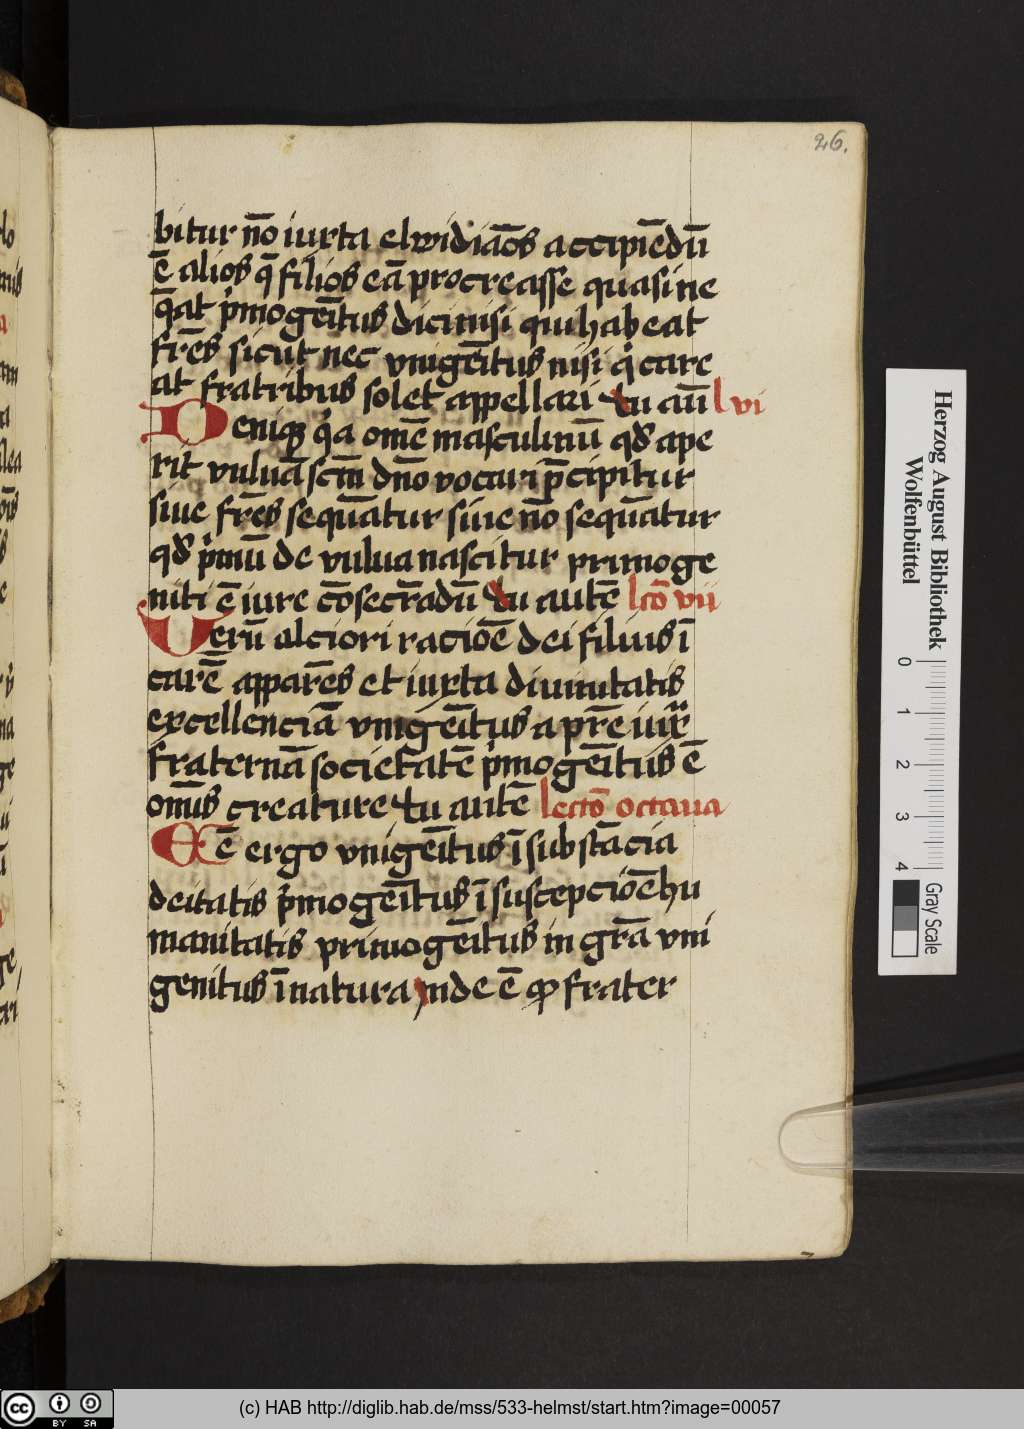 26.
bitur nō iuxta elwidiāōs accipiēdū
ē alios q̄ filios eā procreasse quasi ne
q̄at p̍mogēitus dici nisi qui habeat
fr̄es sicut nec vnigēitus nisi q̍ care
at fratribus solet appellari tu aū l vi
Deniqꝫ q̍a om̄e masculinū qđ ape
rit vuluā sc̄m dn̄o vocari p̄cipitur
siue fr̄es sequātur siue nō sequātur
qđ p̍mū de vulua nascitur primoge
niti ē iure cōsecr̄adū tu autē lc̄o vii
Uerū alciori raciōe dei filius ī
carē apparēs et iuxta diuinitatis
excellenciā vnigēitus a pr̄e iux̄
fraternā societatē p̍mogēitus ē
om̄is creature tu autē lectō octaua
Eē ergo vnigēitus ī substācia
deitatis p̍mogēitus ī suscepciōe hu
manitatis primogēitus in gr̄a vni
genitus ī natura inde ē ꝙ frater
Herzog August Bibliothek
Wolfenbüttel
0 1 2 3 4
Gray Scale
cc BY SA
(c) HAB http://diglib.hab.de/mss/533-helmst/start.htm?image=00057